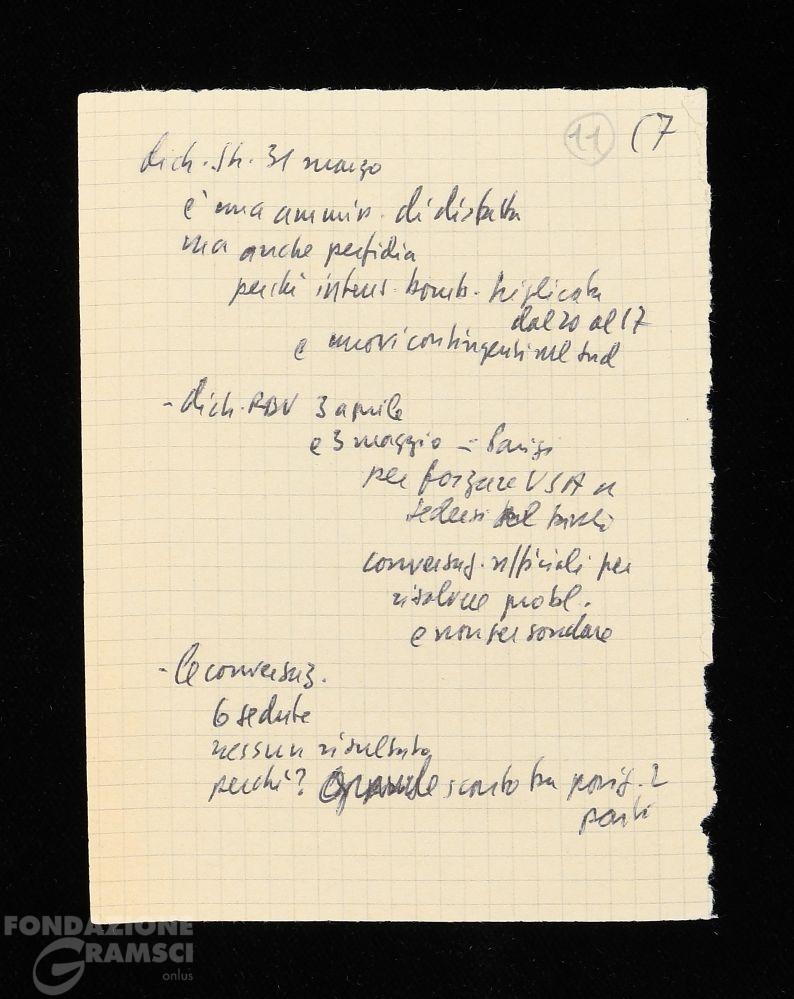 11 (7
dich. Jh. 31 marzo
è una ammis. di disfatta
ma anche perfidia
perchè intens. bomb. triplicata
dal 20 al 17
e nuovi contingenti nel sud
- dich. RDV 3 aprile
e 3 maggio = Parigi
per forzare USA a
sedersi
conversaz. ufficiali per
risolvere probl.
e non per sondare
- le conversaz.
6 sedute
nessun risultato
perchè? scontro tra posiz. 2
parti
FONDAZIONE
GRAMSCI
onlus